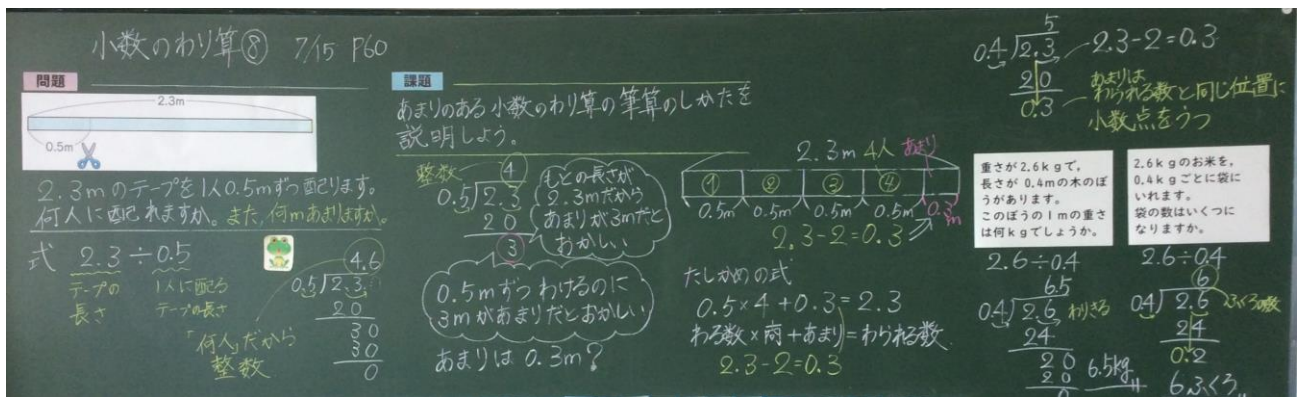 小数のわり算⑧ 7/15 P60
問題
2.3m
0.5m
2.3mのテープを1人0.5mずつ配ります。
何人に配れますか。また、何mあまりますか。
式 2.3÷0.5
テープの長さ
1人に配るテープの長さ
「何人」だから
整数
4.6
0.5 2.3
20
30
30
0
課題
あまりのある小数のわり算の筆算のしかたを
説明しよう。
整数
4
0.5 2.3
20
3
もとの長さが
2.3mだから
あまりが3mだと
おかしい
0.5mずつわけるのに
3mがあまりだとおかしい
あまりは0.3m?
2.3m 4人 あまり
① ② ③ ④
0.5m 0.5m 0.5m 0.5m 0.3m
2.3-2=0.3
たしかめの式
0.5×4+0.3=2.3
わる数×商+あまり=わられる数
2.3-2=0.3
5
0.4 2.3
20
0.3
2.3-2=0.3
あまりは
わられる数と同じ位置に
小数点をうつ
重さが2.6kgで、
長さが0.4mの木のぼ
うがあります。
このぼうの1mの重さ
は何kgでしょうか。
2.6÷0.4
6.5
0.4 2.6 わりきる
24
20
20
0
6.5kg
2.6kgのお米を、
0.4kgごとに袋に
いれます。
袋の数はいくつに
なりますか。
2.6÷0.4
6
0.4 2.6 ふくろの数
24
0.2
6ふくろ